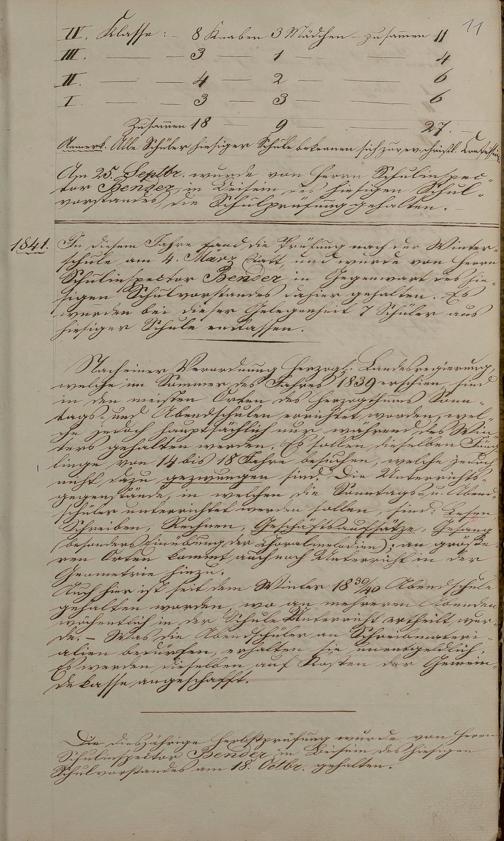 11
IV. Klasse: – 8 Knaben 3 Mädchen – zusammen 11
III. — 3 — 1 — 4
II. — 4 — 2 — 6
I. — 3 — 3 — 6
Zusammen 18 — 9 — 27.
Anmerk. Alle Schüler hiesiger Schule bekennen sich zur ev. christl. Confession.
Am 25. Septbr. wurde von Herrn Schulinspec-
tor Bender, in Beisein des hiesigen Schul-
vorstandes, die Schulprüfung gehalten.
1841. In diesem Jahre fand die Prüfung nach der Winter-
schule am 4. März statt, und wurde von Herrn
Schulinspector Bender in Gegenwart des hie-
sigen Schulvorstandes dahier gehalten. Es
wurden bei dieser Gelegenheit 7 Schüler aus
hiesiger Schule entlassen.
Nach einer Verordnung Herzogl. Landesregierung,
welche im Sommer des Jahres 1839 erschien, sind
in den meisten Orten des Herzogthums Sonn-
tags- und Abendschulen errichtet worden, wel-
che jedoch hauptsächlich nur während des Win-
ters gehalten werden. Es sollen dieselben Jüng-
linge von 14 bis 18 Jahre besuchen, welche jedoch
nicht dazu gezwungen sind. Die Unterrichts-
gegenstände, in welchen die Sonntags- u. Abend-
schüler unterrichtet werden sollen, sind: Lesen,
Schreiben, Rechnen, Geschäftsaufsätze, Gesang
(besonders Einübung der Choralmelodien); an größe-
ren Orten kommt auch noch Unterricht in der
Geometrie hinzu.
Auch hier ist seit dem Winter 1839/40 Abendschule
gehalten worden, wo an mehreren Abenden
wöchentlich in der Schule Unterricht ertheilt wur-
de. – Was die Abendschüler an Schreibmateri-
alien bedürfen, erhalten sie unentgeldlich.
Es werden dieselben auf Kosten der Gemein-
dekasse angeschafft.
Die diesjährige Herbstprüfung wurde von Herrn
Schulinspektor Bender in Beisein des hiesigen
Schulvorstandes am 18. Octbr. gehalten.